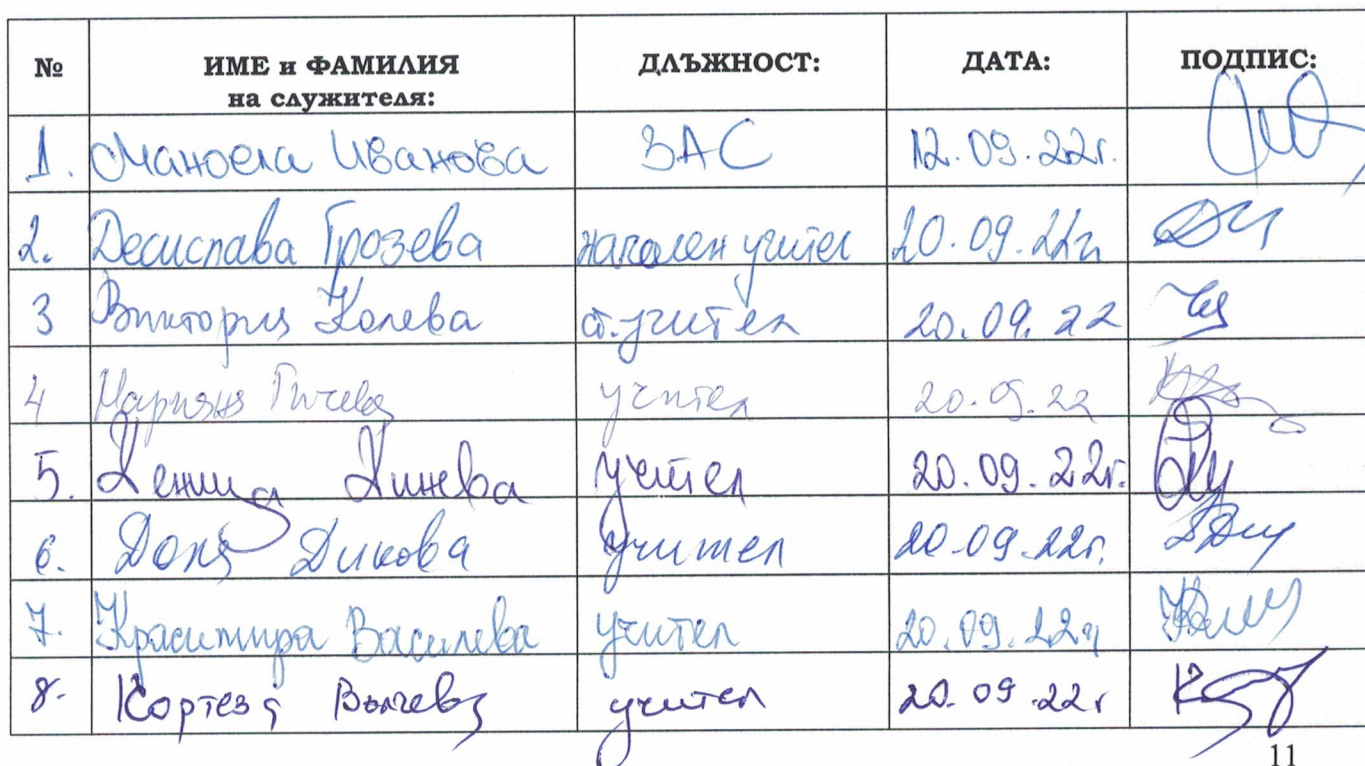 № ИМЕ и ФАМИЛИЯ ДЛЪЖНОСТ: ДАТА: ПОДПИС:
на служителя:
1. Маноела Иванова ЗАС 12.09.22г.
2. Десислава Грозева начален учител 20.09.22г
3 Виктория Колева ст. учител 20.09.22
4 Марияна учител 20.09.22
5. Динева учител 20.09.22г.
6. Доня Дикова учител 20.09.22г.
7. Красимира Василева учител 20.09.22г
8. Кортеза Вълчева учител 20.09.22г
11